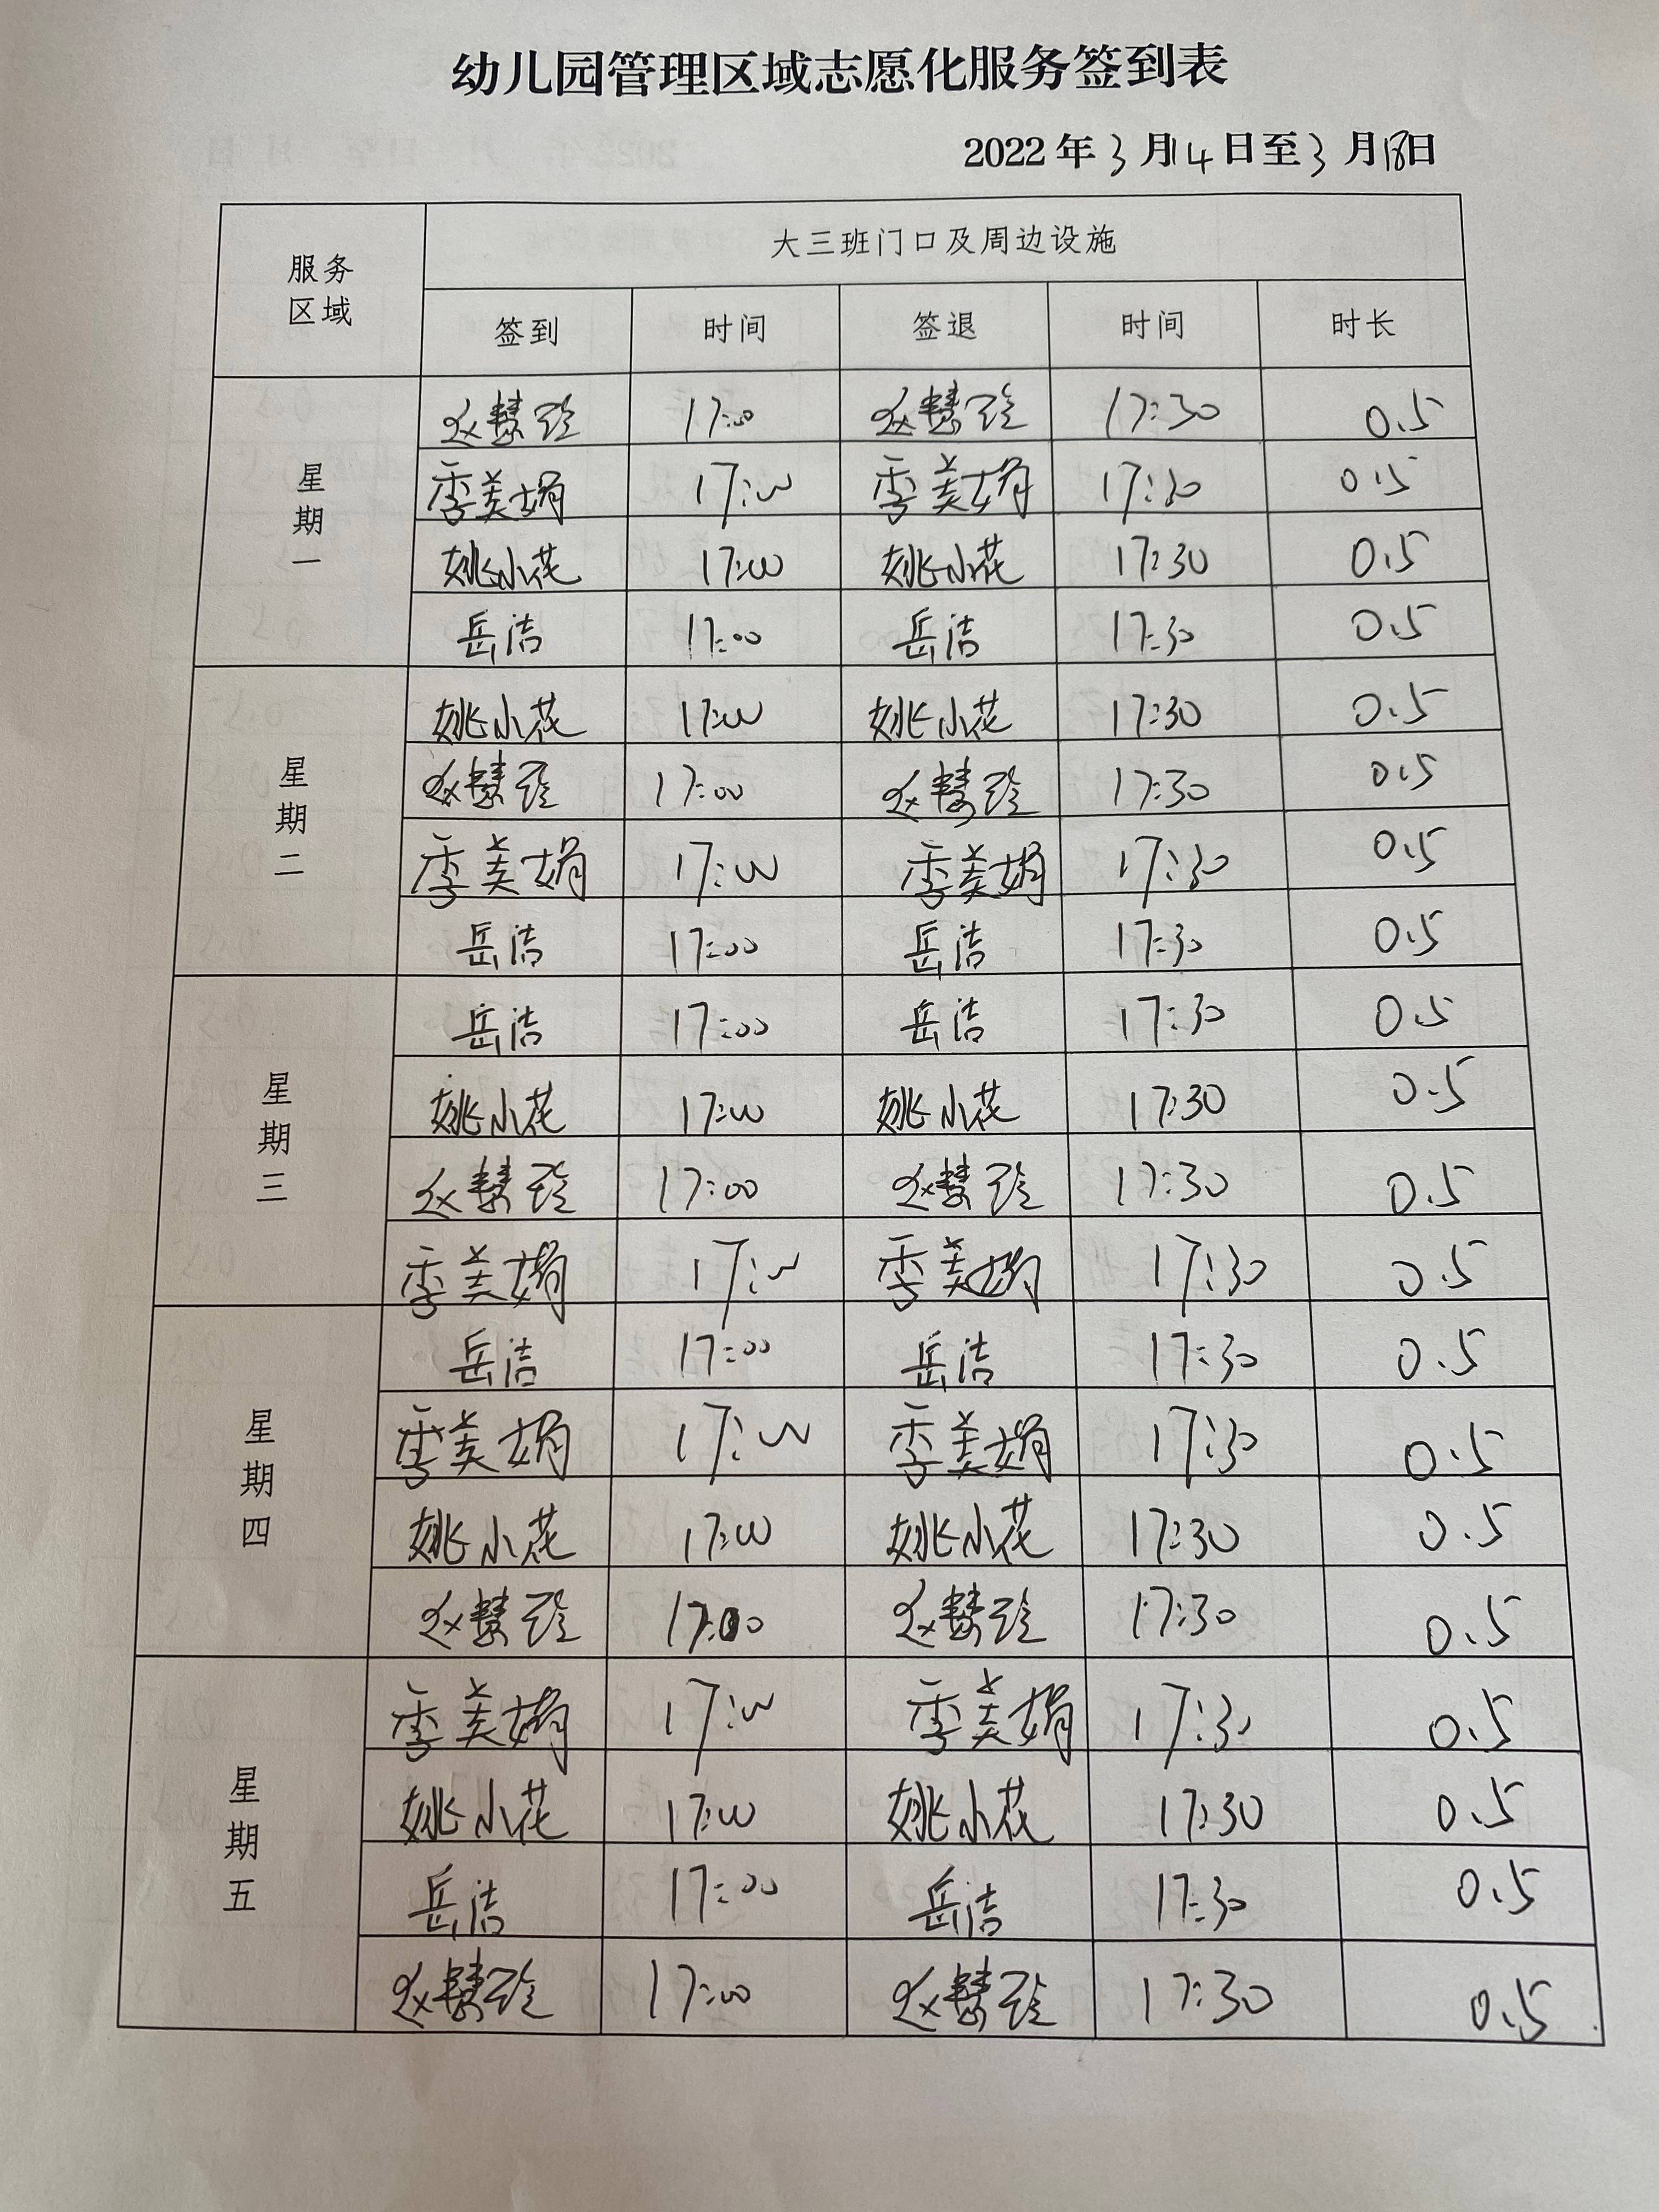 幼儿园管理区域志愿化服务签到表
2022年3月14日至3月18日
服务区域 大三班门口及周边设施
签到 时间 签退 时间 时长
星期一
赵慧玲 17:00 赵慧玲 17:30 0.5
季美娟 17:00 季美娟 17:30 0.5
姚小花 17:00 姚小花 17:30 0.5
岳洁 17:00 岳洁 17:30 0.5
星期二
姚小花 17:00 姚小花 17:30 0.5
赵慧玲 17:00 赵慧玲 17:30 0.5
季美娟 17:00 季美娟 17:30 0.5
岳洁 17:00 岳洁 17:30 0.5
星期三
岳洁 17:00 岳洁 17:30 0.5
姚小花 17:00 姚小花 17:30 0.5
赵慧玲 17:00 赵慧玲 17:30 0.5
季美娟 17:00 季美娟 17:30 0.5
星期四
岳洁 17:00 岳洁 17:30 0.5
季美娟 17:00 季美娟 17:30 0.5
姚小花 17:00 姚小花 17:30 0.5
赵慧玲 17:00 赵慧玲 17:30 0.5
星期五
季美娟 17:00 季美娟 17:30 0.5
姚小花 17:00 姚小花 17:30 0.5
岳洁 17:00 岳洁 17:30 0.5
赵慧玲 17:00 赵慧玲 17:30 0.5